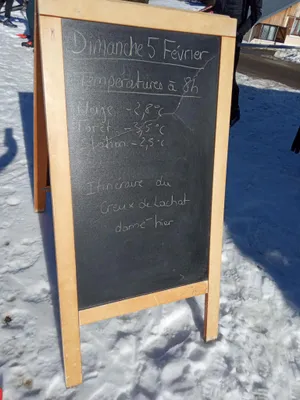 Dimanche 5 Février
Températures à 8h
-2,8°C
Forêt -3,5°C
Station -2,5°C
Itinéraire du
Creux de Lachat
damé hier